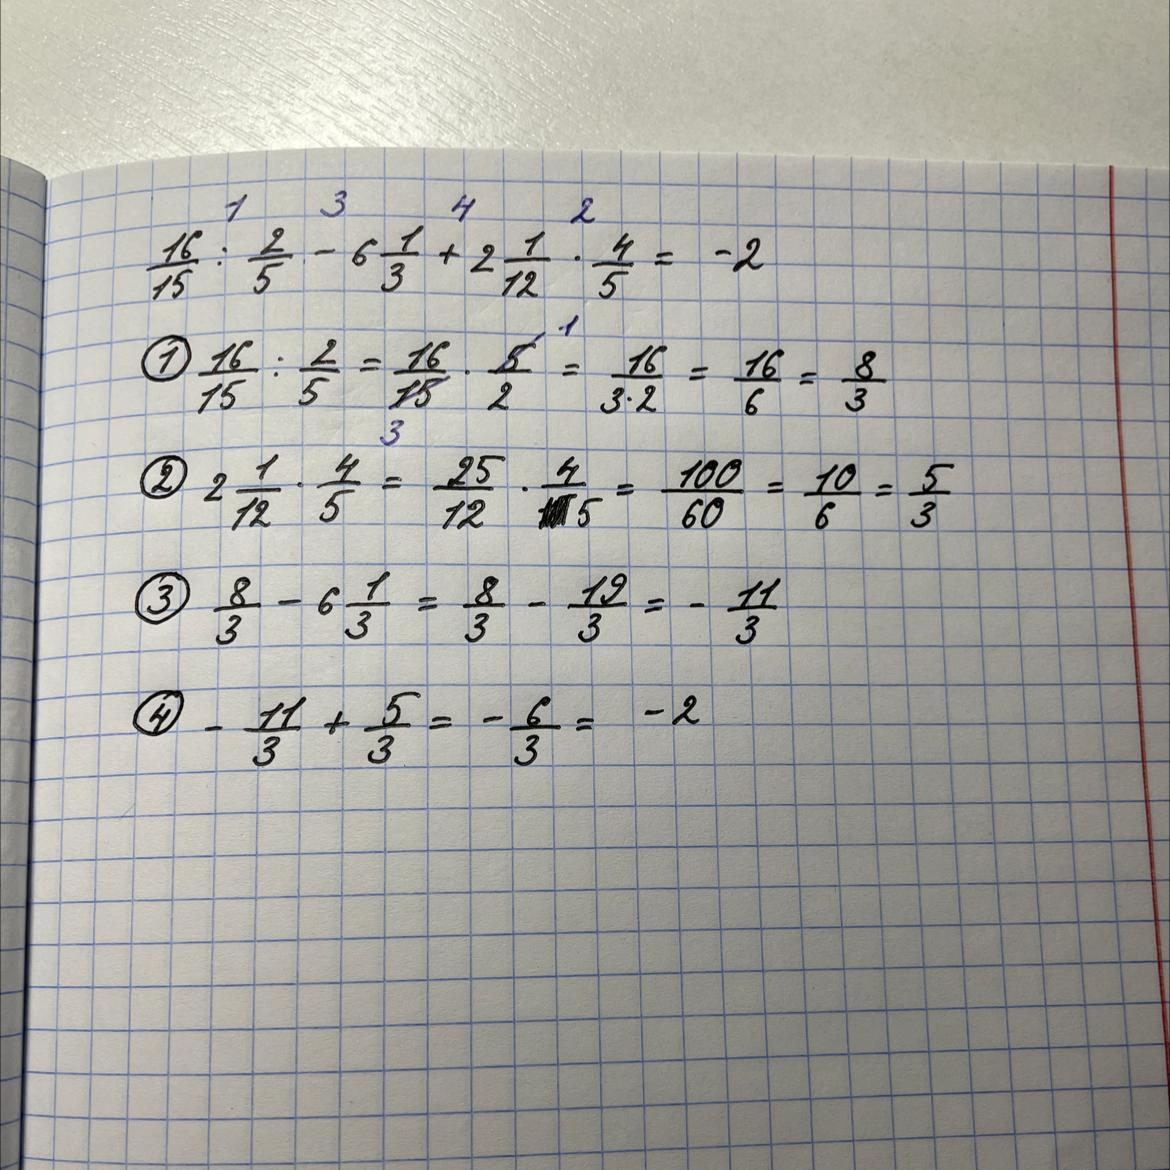 1 3 4 2
16/15 : 2/5 - 6 1/3 + 2 1/12 · 4/5 = -2
① 16/15 : 2/5 = 16/15 · 5/2 = 16/3·2 = 16/6 = 8/3
1
3
② 2 1/12 · 4/5 = 25/12 · 4/5 = 100/60 = 10/6 = 5/3
③ 8/3 - 6 1/3 = 8/3 - 19/3 = - 11/3
④ - 11/3 + 5/3 = - 6/3 = -2